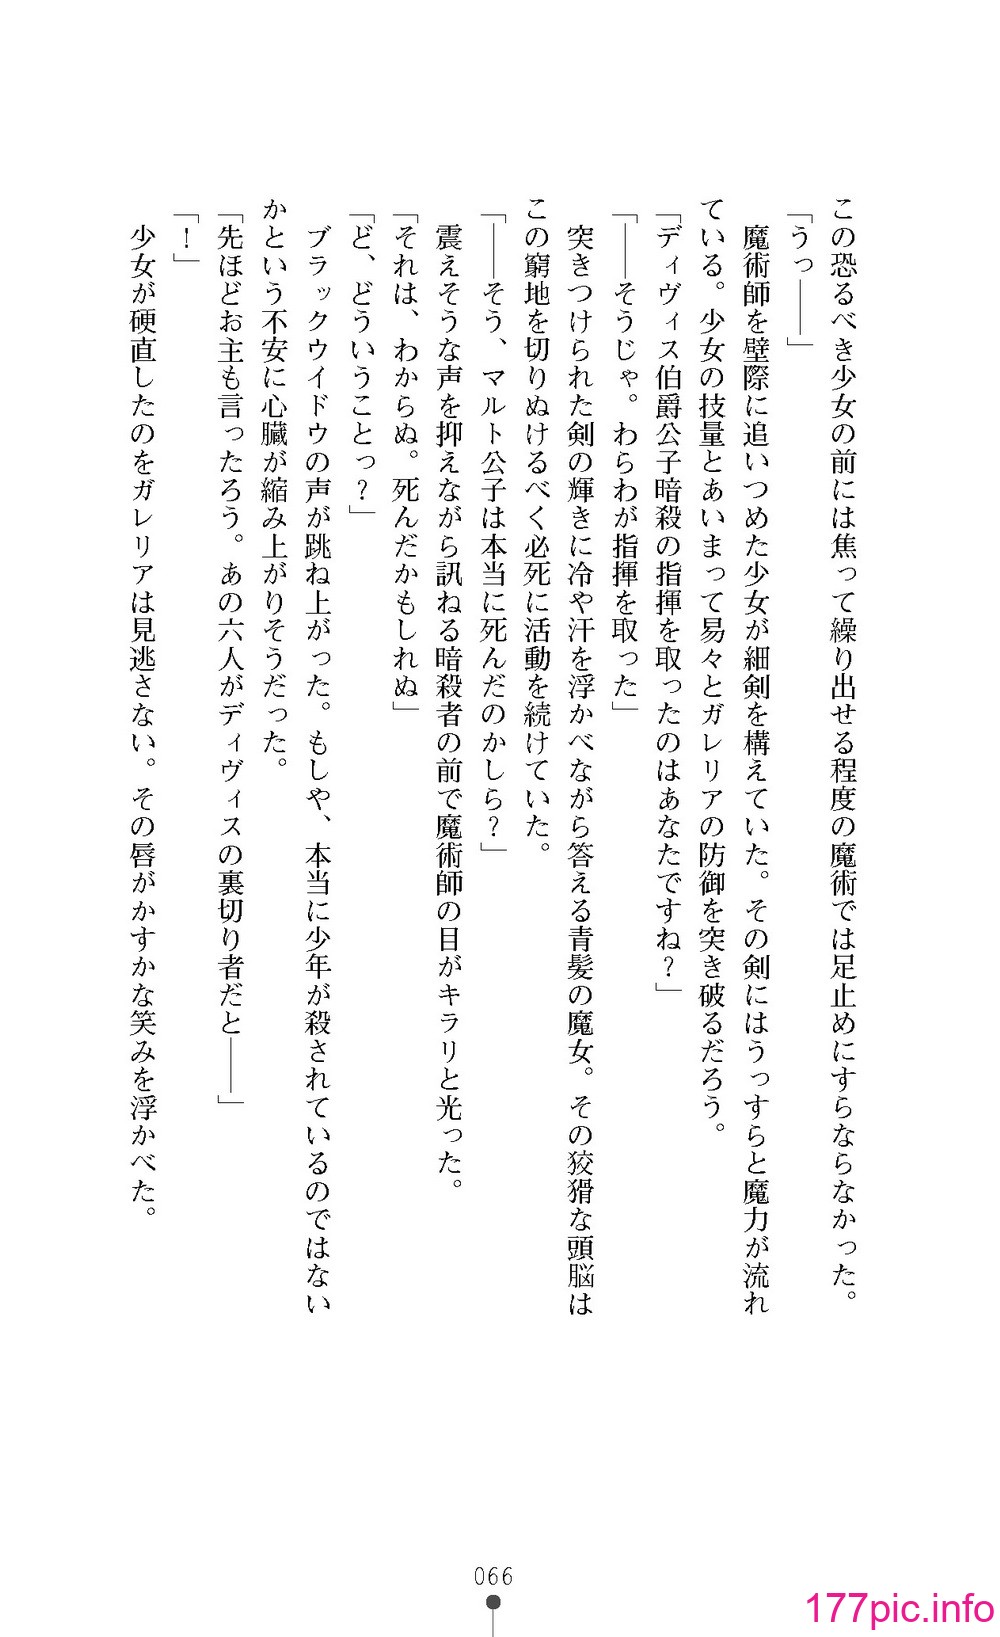 この恐るべき少女の前には焦って繰り出せる程度の魔術では足止めにすらならなかった。
「うっ――」
　魔術師を壁際に追いつめた少女が細剣を構えていた。その剣にはうっすらと魔力が流れ
ている。少女の技量とあいまって易々とガレリアの防御を突き破るだろう。
「ディヴィス伯爵公子暗殺の指揮を取ったのはあなたですね？」
「――そうじゃ。わらわが指揮を取った」
　突きつけられた剣の輝きに冷や汗を浮かべながら答える青髪の魔女。その狡猾な頭脳は
この窮地を切りぬけるべく必死に活動を続けていた。
「――そう、マルト公子は本当に死んだのかしら？」
　震えそうな声を抑えながら訊ねる暗殺者の前で魔術師の目がキラリと光った。
「それは、わからぬ。死んだかもしれぬ」
「ど、どういうことっ？」
　ブラックウイドウの声が跳ね上がった。もしや、本当に少年が殺されているのではない
かという不安に心臓が縮み上がりそうだった。
「先ほどお主も言ったろう。あの六人がディヴィスの裏切り者だと――」
「！」
　少女が硬直したのをガレリアは見逃さない。その唇がかすかな笑みを浮かべた。
066
177pic.info